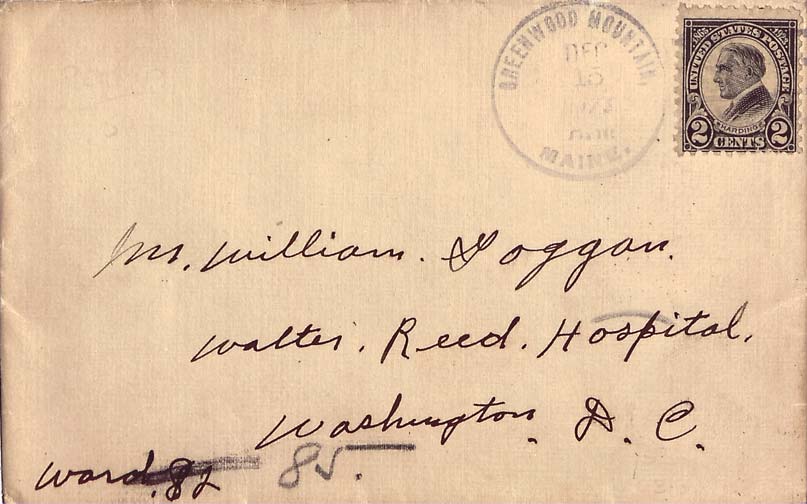 GREENWOOD MOUNTAIN,
DEC
15
MAINE.
1865 1923
UNITED STATES POSTAGE
HARDING
2 CENTS 2
Mr. William. Goggan.
Walter. Reed. Hospital.
Washington. D. C.
Ward. 82 85.